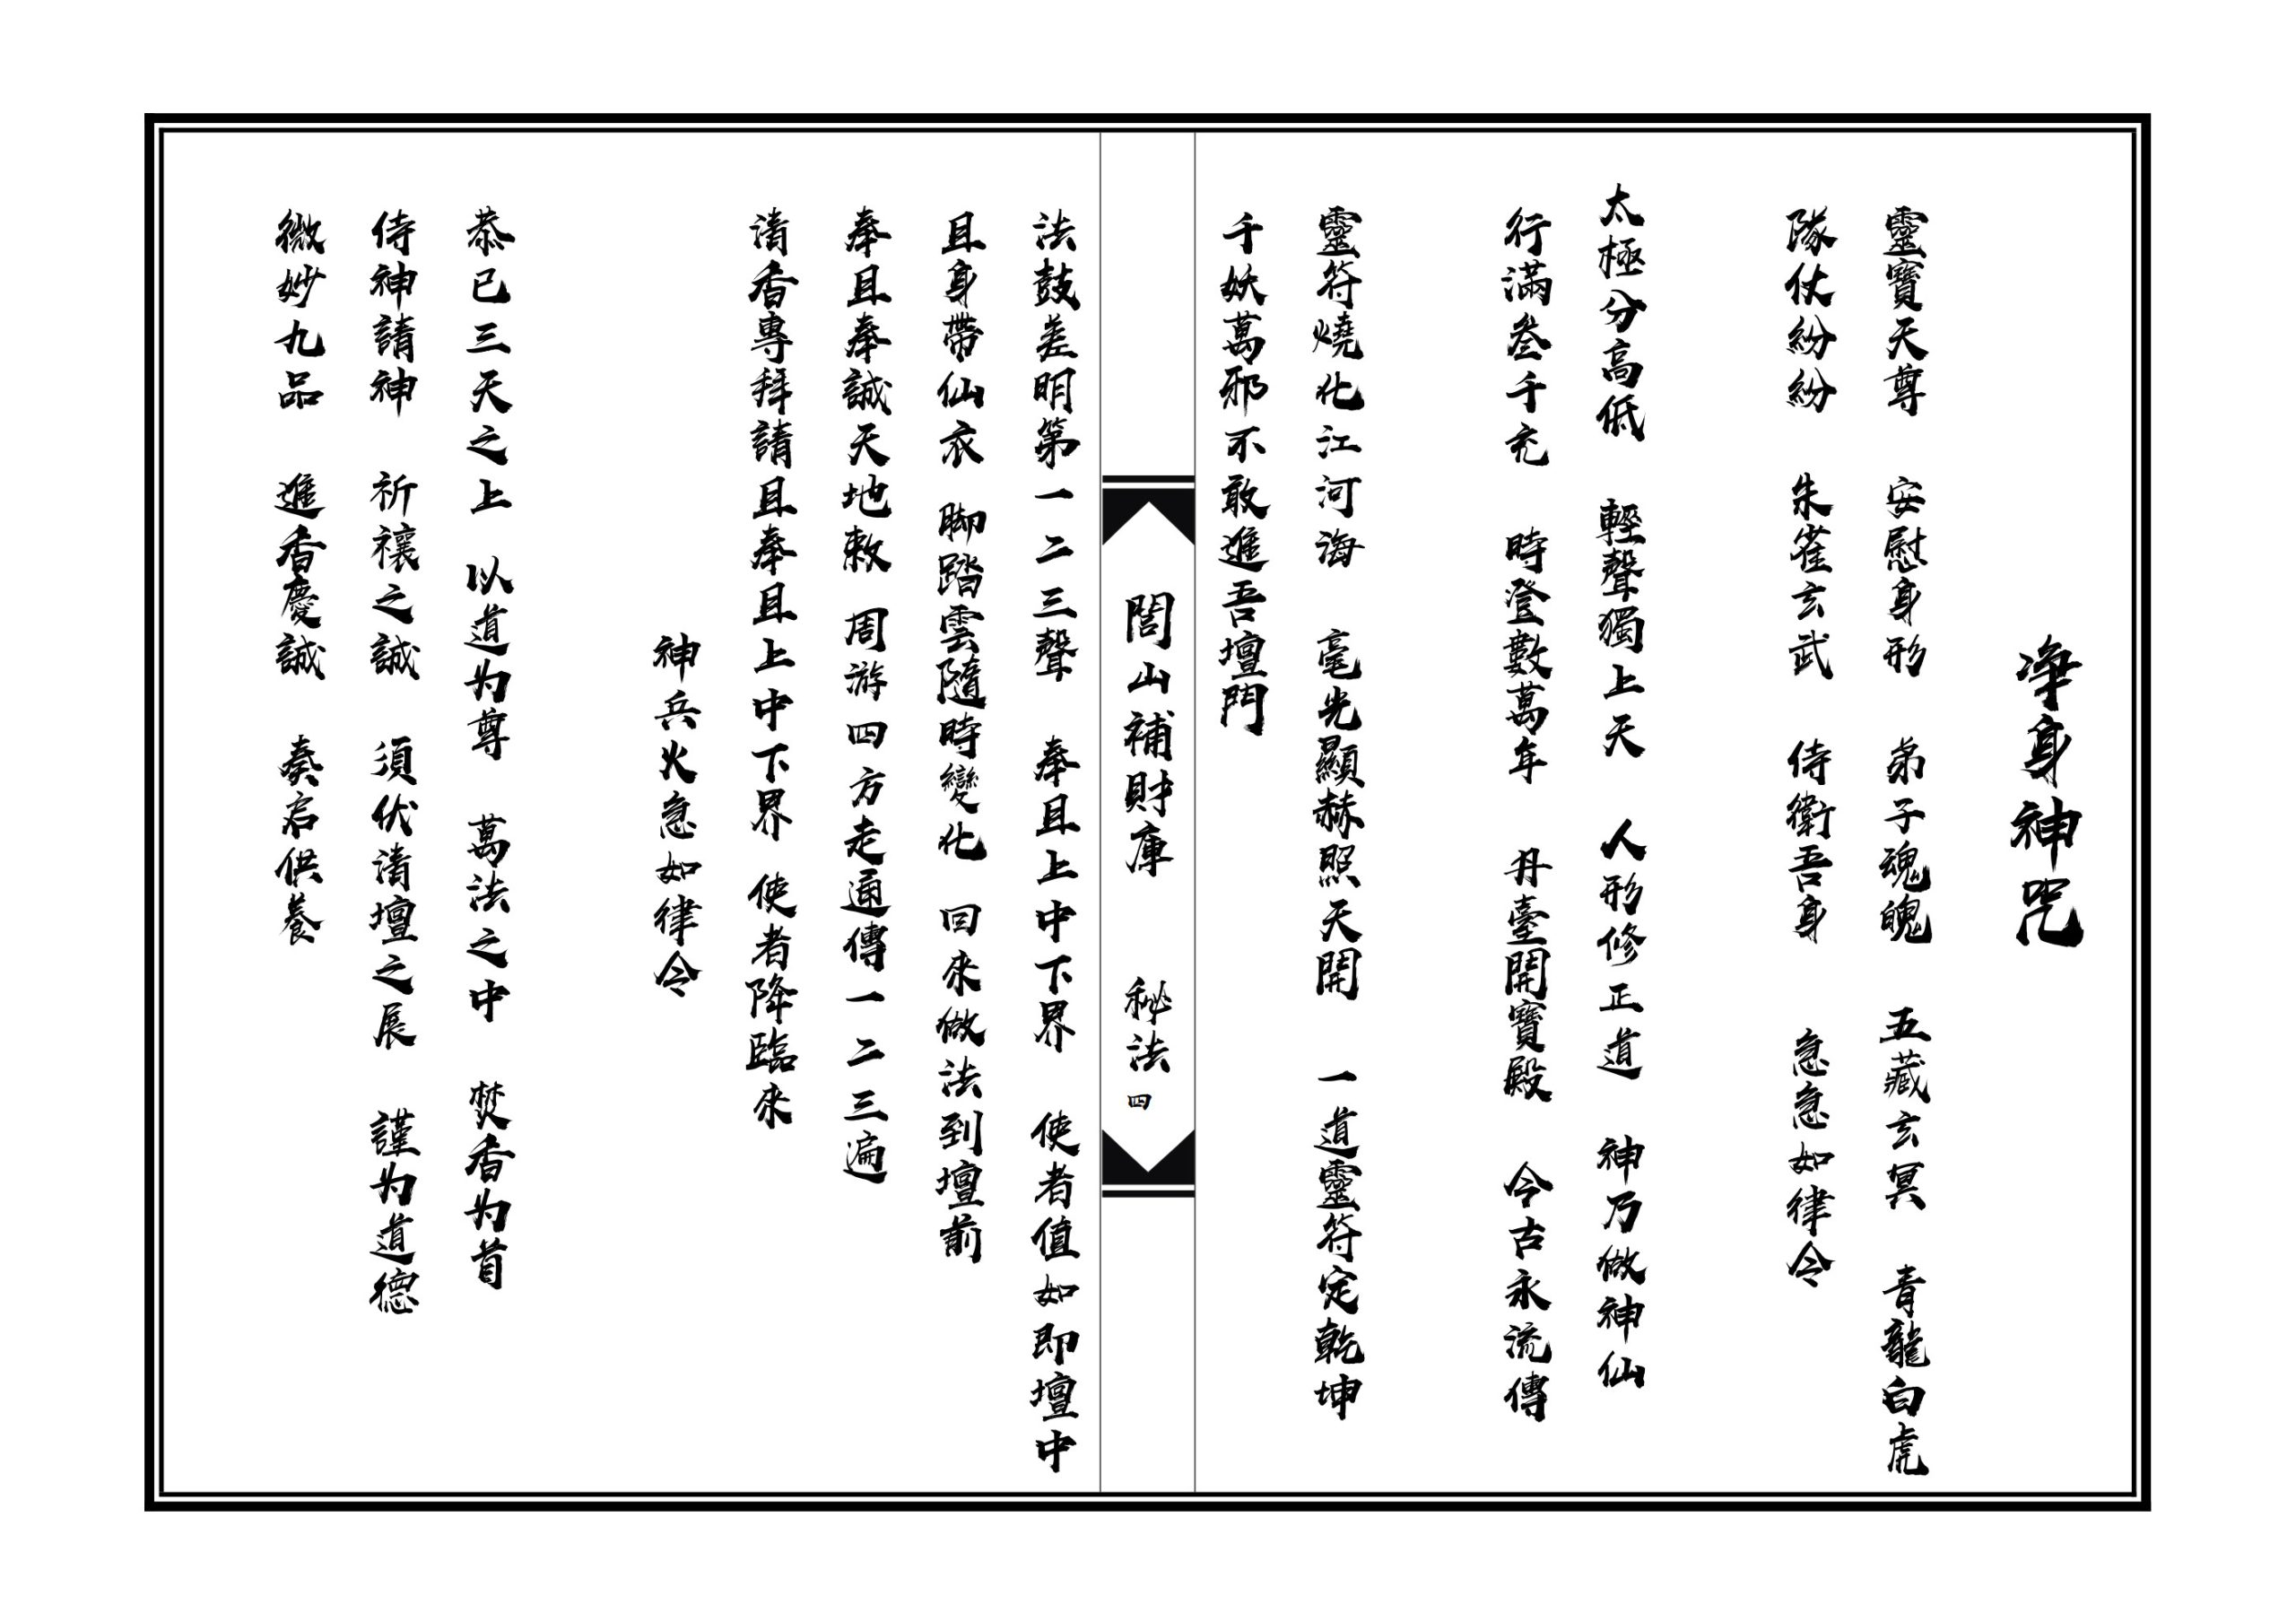 净身神咒
靈寶天尊 安慰身形 弟子魂魄 五藏玄冥 青龍白虎
隊仗紛紛 朱雀玄武 侍衛吾身 急急如律令
太極分高低 輕聲獨上天 人形修正道 神乃做神仙
行滿叄千充 時登數萬年 丹臺開寶殿 今古永流傳
靈符燒化江河海 毫光顯赫照天開 一道靈符定乾坤
千妖萬邪不敢進吾壇門
閭山補財庫 秘法 四
法鼓差明第一二三聲 奉且上中下界 使者值如即壇中
且身帶仙衣 脚踏雲隨時變化 回來做法到壇前
奉且奉誠天地敕 周游四方走通傳一二三遍
清香專拜請且奉且上中下界 使者降臨來
神兵火急如律令
恭已三天之上 以道为尊 萬法之中 焚香为首
侍神請神 祈禳之誠 須伏清壇之展 謹为道德
微妙九品 進香慶誠 奏启供養